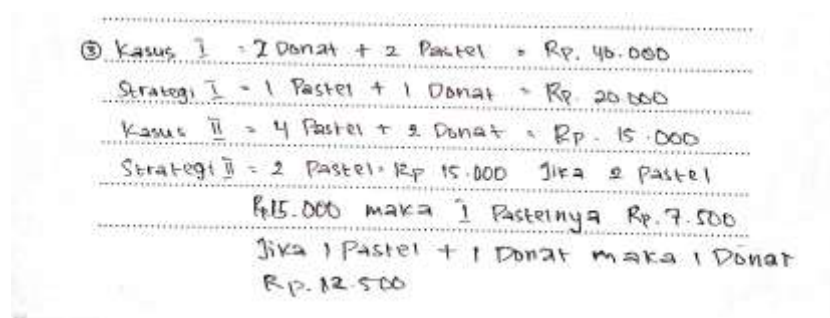 ③ Kasus I = 2 Donat + 2 Pastel = Rp. 40.000
Strategi I = 1 Pastel + 1 Donat = Rp. 20.000
Kasus II = 4 Pastel + 2 Donat = Rp. 15.000
Strategi II = 2 Pastel = Rp 15.000 Jika 2 Pastel
Rp15.000 maka 1 Pastelnya Rp. 7.500
Jika 1 Pastel + 1 Donat maka 1 Donat
Rp. 12.500